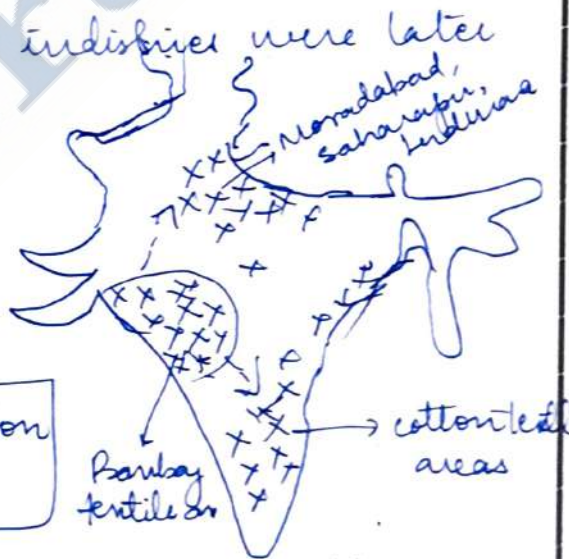 indistries were later
Moradabad,
saharapur,
Ludhiana
on
Bombay
textile
cotton textil
areas